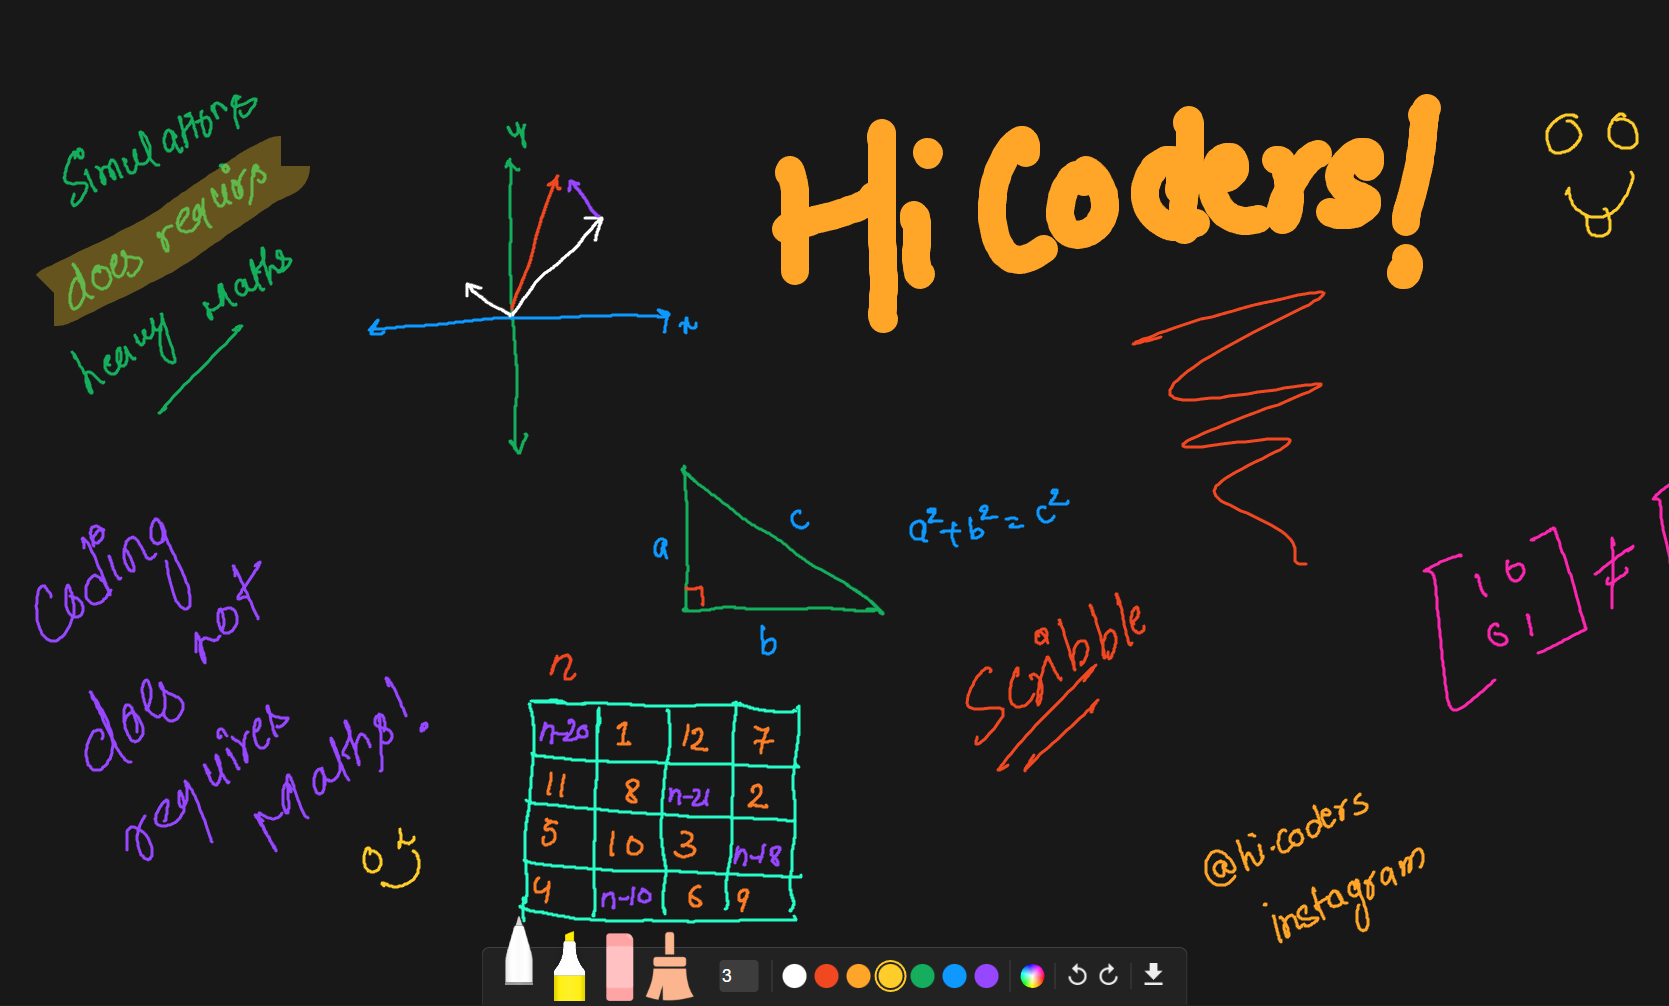 Simulations
does requirs
heavy Maths
y
x
Hi Coders!
a
c
b
a²+b²=c²
Coding
does not
requires
Maths!
Scribble
1 0
0 1
≠
n
n-20 1 12 7
11 8 n-21 2
5 10 3 n-18
4 n-10 6 9
@hi.coders
instagram
3